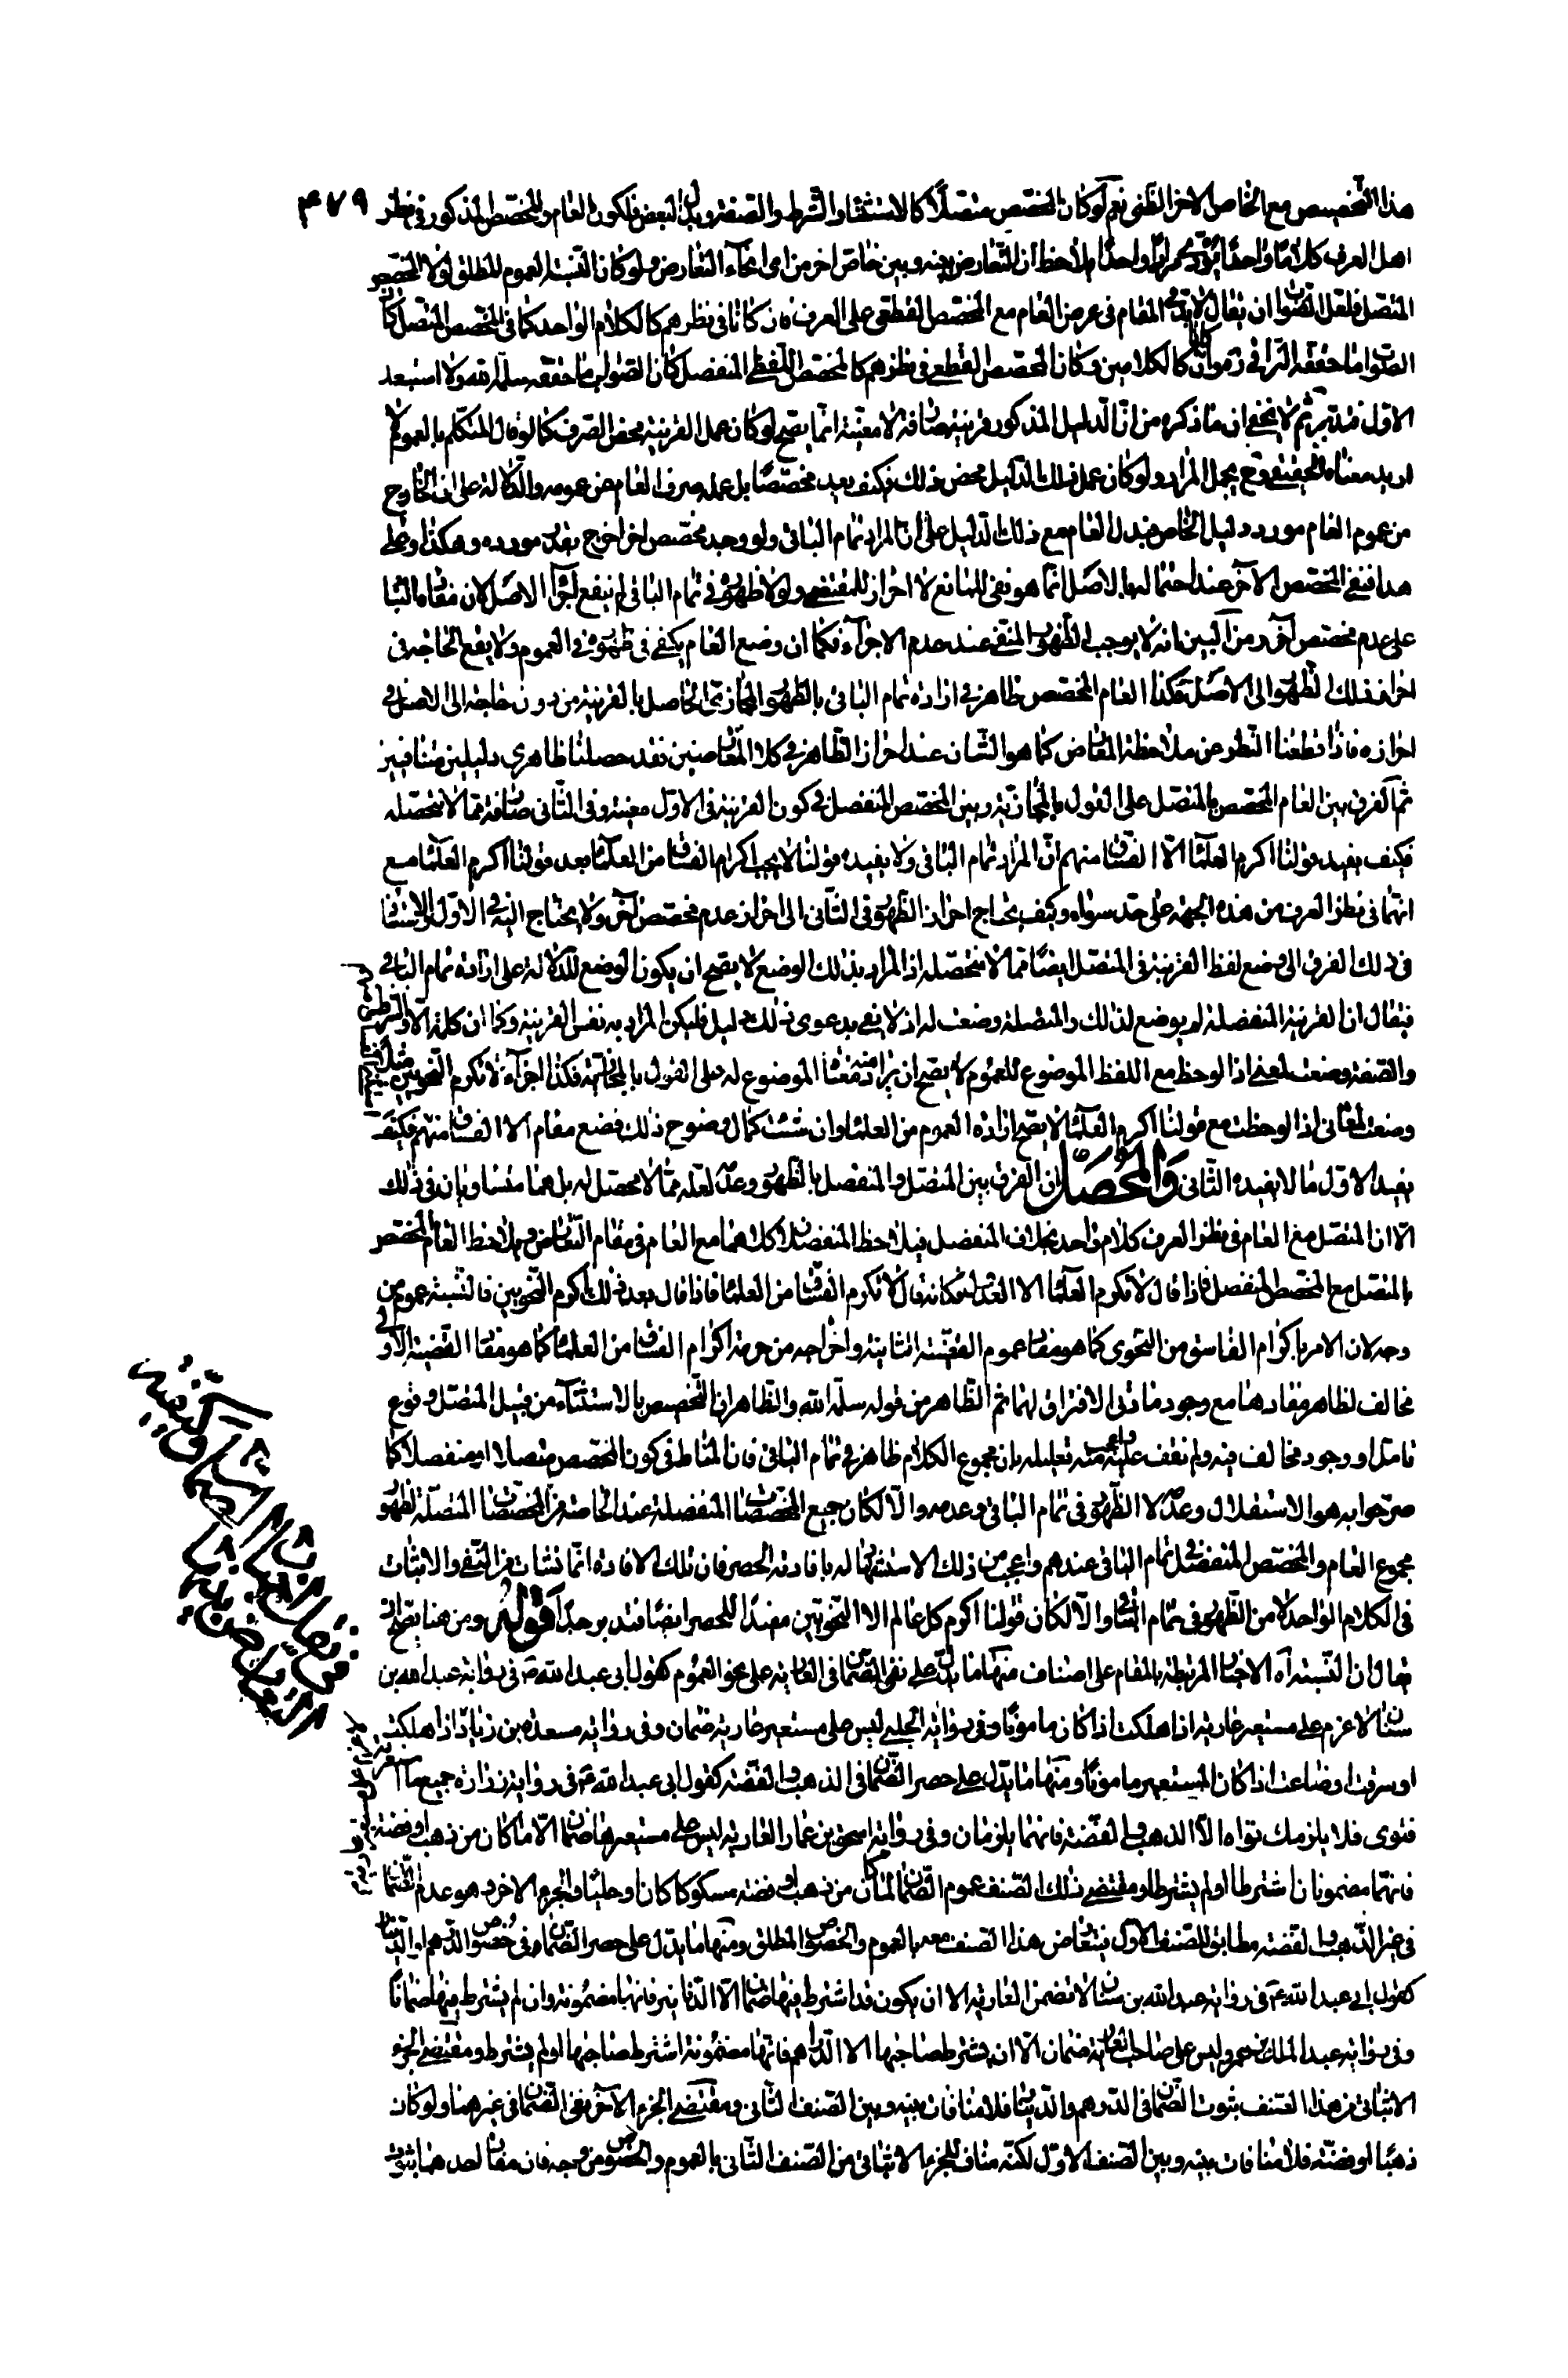 ٤٧٩
هذا التخصيص مع الخاص الاخر الظنى نعم لو كان المخصص متصلا كالاستثناء والشرط والصفة وبدل البعض فلكون العام والمخصص المذكور فى نظر
اهل العرف كلاما واحدا يلاحظ ان التعارض بينه وبين خاص اخر من اى انحاء التعارض ولو كان النسبة العموم المطلق لولا المخصص
المتصل فلعل الصواب ان يقال المقام فى عرض العام مع المخصص القطعى على العرف فان كانا فى نظرهم كالكلام الواحد كما فى المخصص المتصل كان
الصواب ما حققه النراقى وان كانا كالكلامين وكان المخصص القطعى فى نظرهم كالمخصص اللفظى المنفصل كان الصواب ما حققه سلمه الله ولا استبعد
الاول فتدبر ثم لا يخفى ان ما ذكره من ان الدليل المذكور قرينة صارفة لا معينة انما يصح لو كان عمل القرينة محض الصرف كما لو قال المتكلم بالعموم لا
اريد معناه الحقيقى مجمل المراد ولو كان عمل ذلك الدليل محض ذلك فكيف يعد مخصصا بل عمله صرف العام عن عمومه والدلالة على ان الخارج
من عموم العام مورد دليل الخاص فيدل العام مع ذلك الدليل على ان المراد تمام الباقى ولو وجد مخصص اخر اخرج بقدر مورده وهكذا وعلى
هذا فنفى المخصص الآخر عند احتماله بالاصل انما هو نفى المانع لا احراز للمقتضى ولولا ظهوره فى تمام الباقى لم ينفع اجراء الاصل لان مفاده البناء
على عدم مخصص آخر ومن البين انه لا يوجب الظهور المنفى عند عدم الاجراء فكما ان وضع العام يكفى فى ظهوره فى العموم ولا يقع الحاجة فى
احراز ذلك الظهور الى الاصل فكذا العام المخصص ظاهر فى ارادة تمام الباقى بالظهور المجازى الحاصل بالقرينة من دون حاجة الى الاصل فى
احرازه فاذا قطعنا النظر عن ملاحظة المعارض كما هو الشأن عند احراز الظاهر فى كلا المتعارضين فقد حصل لنا ظاهرى دليلين متنافيين
ثم الفرق بين العام المخصص بالمتصل على القول بالمجازية وبين المخصص المنفصل فى كون القرينة فى الاول معينة وفى الثانى صارفة مما لا نتحصله
فكيف يفيد قولنا اكرم العلماء الا الفساق منهم ان المراد تمام الباقى ولا يفيده قولنا لا يجب اكرام الفساق من العلماء بعد قولنا اكرم العلماء مع
انهما فى نظر العرف من هذه الجهة على حد سواء وكيف يحتاج احراز الظهور فى الثانى الى احراز عدم مخصص آخر ولا يحتاج اليه فى الاول والاستناد
فى ذلك الفرق الى وضع لفظ القرينة فى المتصل ايضا مما لا نتحصله اذ المراد بذلك الوضع لا يصح ان يكون الوضع للدلالة على ارادة تمام الباقى
فيقال ان القرينة المنفصلة لم يوضع لذلك والمتصلة وضعت له اذ لا يفى بدعوى ذلك دليل فليكن المراد به نفس القرينة وكما ان كلمة الا والشرط
والصفة وضعت لمعنى اذا لوحظ مع اللفظ الموضوع للعموم لا يصح ان يراد منه معناه الموضوع له على القول بالمجازية فكذا اجزاء لا تكرم النحويين مثلا
وضعت لمعانى اذا لوحظت مع قولنا اكرم العلماء لا يصح ارادة العموم من العلماء وان شئت كمال وضوح ذلك فضع مقام الا الفساق منهم فكيف
يفيد الاول ما لا يفيده الثانى والمحصل ان الفرق بين المتصل والمنفصل بالظهور وعدمه لعله مما لا محصل له بل هما متساويان فى ذلك
الا ان المتصل مع العام فى نظر العرف كلام واحد بخلاف المنفصل فيلاحظ المنفصلان كلاهما مع العام فى مقام التعارض ويلاحظ العام المخصص
بالمتصل مع المخصص المنفصل فاذا قال لا تكرم العلماء الا العدول فكانه قال لا تكرم الفساق من العلماء فاذا قال بعد ذلك اكرم النحويين فالنسبة عموم من
وجه لان الامر باكرام الفاسق من النحوى كما هو مفاد عموم القضية الثانية واخراجه من حرمة اكرام الفساق من العلماء كما هو مفاد القضية الاولى
مخالف لظاهر مفادهما مع وجود مادتى الافتراق لهما ثم الظاهر من قوله سلمه الله والظاهر ان التخصيص بالاستثناء من قبيل المتصل وقوع
تامل او وجود مخالف فيه ولم نقف عليه واعجب منه تعليله بان مجموع الكلام ظاهر فى تمام الباقى فان المناط فى كون المخصص متصلا او منفصلا كما
صرحوا به هو الاستقلال وعدمه لا الظهور فى تمام الباقى وعدمه والا لكان جميع المخصصات المنفصلة عند الخاصة من المخصصات المتصلة لظهور
مجموع العام والمخصص المنفصل فى تمام الباقى عندهم واعجب من ذلك الاستشهاد له بافادته الحصر فان تلك الافادة انما نشات من النفى والاثبات
فى الكلام الواحد لا من الظهور فى تمام الباقى والا لكان قولنا اكرم كل عالم الا النحويين مفيدا للحصر ايضا فتدبر جدا قوله ومن هنا يصح ان
يقال ان النسبة آه الاخبار المرتبطة بالمقام على اصناف منها ما يدل على نفى الضمان فى العارية على نحو العموم كقول ابى عبد الله ع فى رواية عبد الله بن
سنان لا غرم على مستعير عارية اذا هلكت اذا كان مامونا وفى رواية الحلبى ليس على مستعير عارية ضمان وفى رواية مسعدة بن زياد اذا هلكت
او سرقت او ضاعت اذا كان المستعير مامونا ومنها ما يدل على حصر الضمان فى الذهب والفضة كقول ابى عبد الله ع فى رواية زرارة جميع ما
فتوى فلا يلزمك تواه الا الذهب والفضة فانهما يلزمان وفى رواية اسحق بن عمار العارية ليس على مستعيرها ضمان الا ما كان من ذهب او فضة
فانهما مضمونان اشترطا او لم يشترطا ومقتضى ذلك الصنف عموم الضمان لما كان من ذهب او فضة مسكوكا كان او حليا والجزء الاخر وهو عدم الضمان
فى غير الذهب والفضة مطابق للصنف الاول فيتعارض هذا الصنف معه بالعموم والخصوص المطلق ومنها ما يدل على حصر الضمان فى خصوص الدرهم او الدينار
كقول ابى عبد الله ع فى رواية عبد الله بن سنان لا تضمن العارية الا ان يكون قد اشترط فيها ضمان الا الدنانير فانها مضمونة وان لم يشترط فيها ضمانا
وفى رواية عبد الملك بن عمرو ليس على صاحب العارية ضمان الا ان يشترط صاحبها الا الدراهم فانها مضمونة اشترط صاحبها او لم يشترط ومقتضى الجزء
الاثباتى من هذا الصنف ثبوت الضمان فى الدرهم والدينار فلا منافات بينه وبين الصنف الثانى ومقتضى الجزء الآخر نفى الضمان فى غيرهما ولو كان
ذهبا او فضة فلا منافات بينه وبين الصنف الاول لكنه مناف للجزء الاثباتى من الصنف الثانى بالعموم والخصوص من وجه فان مفاد احدهما ثبوت